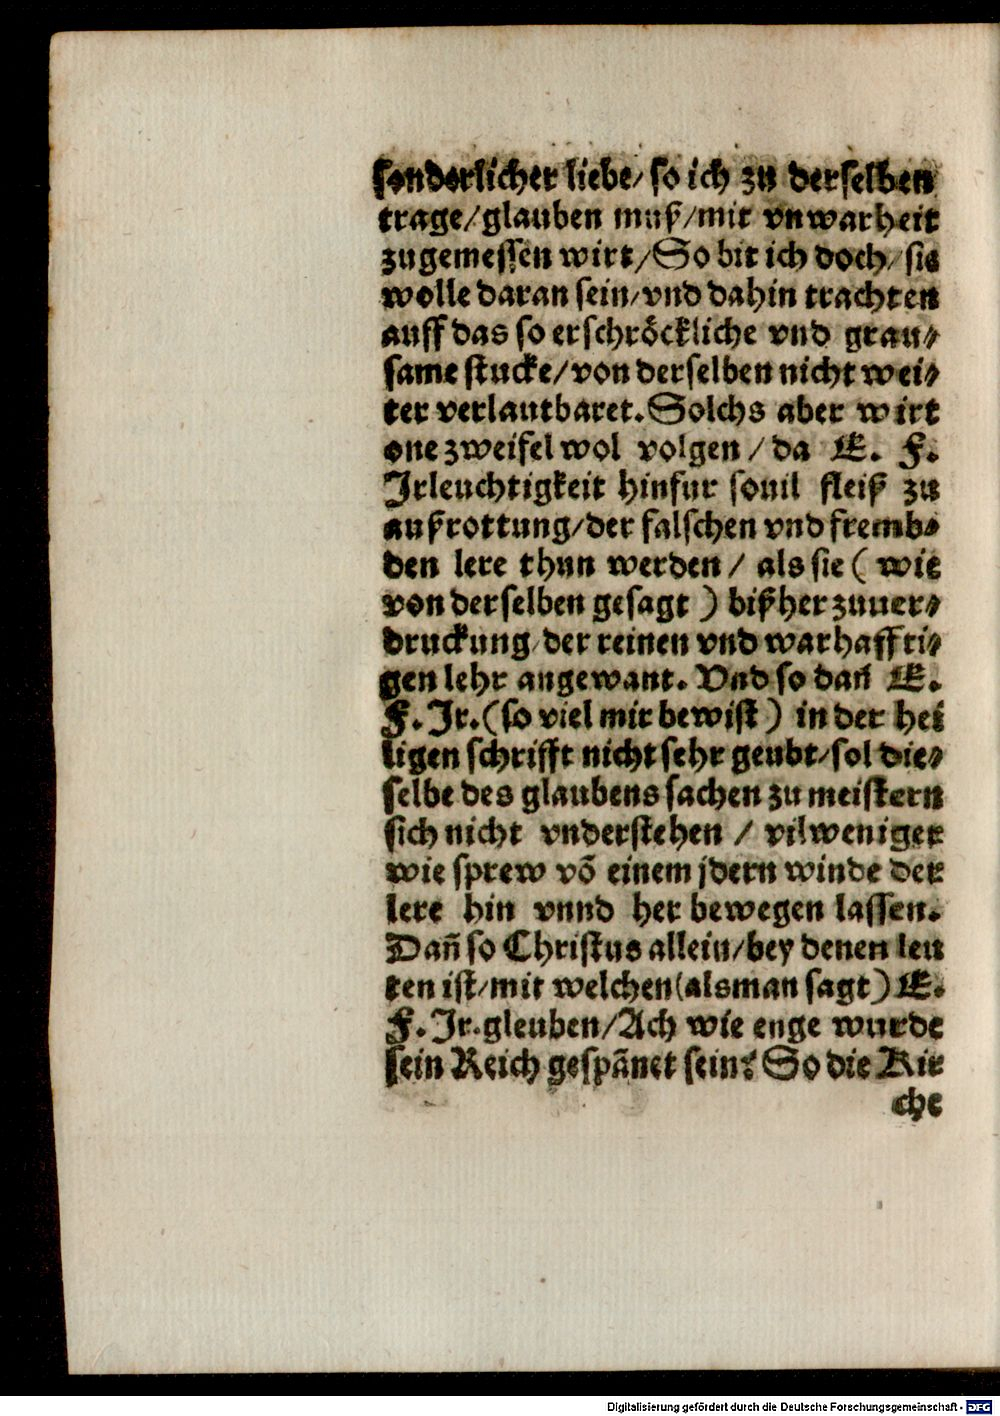 sonderlicher liebe/ so ich zu derselben
trage/glauben muß/mit vnwarheit
zugemessen wirt/So bit ich doch/ sie
wolle daran sein/vnd dahin trachten
auff das so erschröckliche vnd grau⸗
same stucke/von derselben nicht wei⸗
ter verlautbaret. Solchs aber wirt
one zweifel wol volgen / da E. F.
Irleuchtigkeit hinfur souil fleiß zu
außrottung/der falschen vnd fremb⸗
den lere thun werden / als sie ( wie
von derselben gesagt ) bißher zuuer⸗
druckung/der reinen vnd warhaffti⸗
gen lehr angewant. Vnd so dañ E.
F. Ir. (so viel mir bewist ) in der hei
ligen schrifft nicht sehr geubt/sol die⸗
selbe des glaubens sachen zu meistern
sich nicht vnderstehen / vilweniger
wie sprew võ einem jdern winde der
lere hin vnnd her bewegen lassen.
Dañ so Christus allein/bey denen leu
ten ist/mit welchen (alsman sagt ) E.
F. Ir. gleuben/Ach wie enge wurde
sein Reich gespãnet sein? So die Kir
che
Digitalisierung gefördert durch die Deutsche Forschungsgemeinschaft - DFG